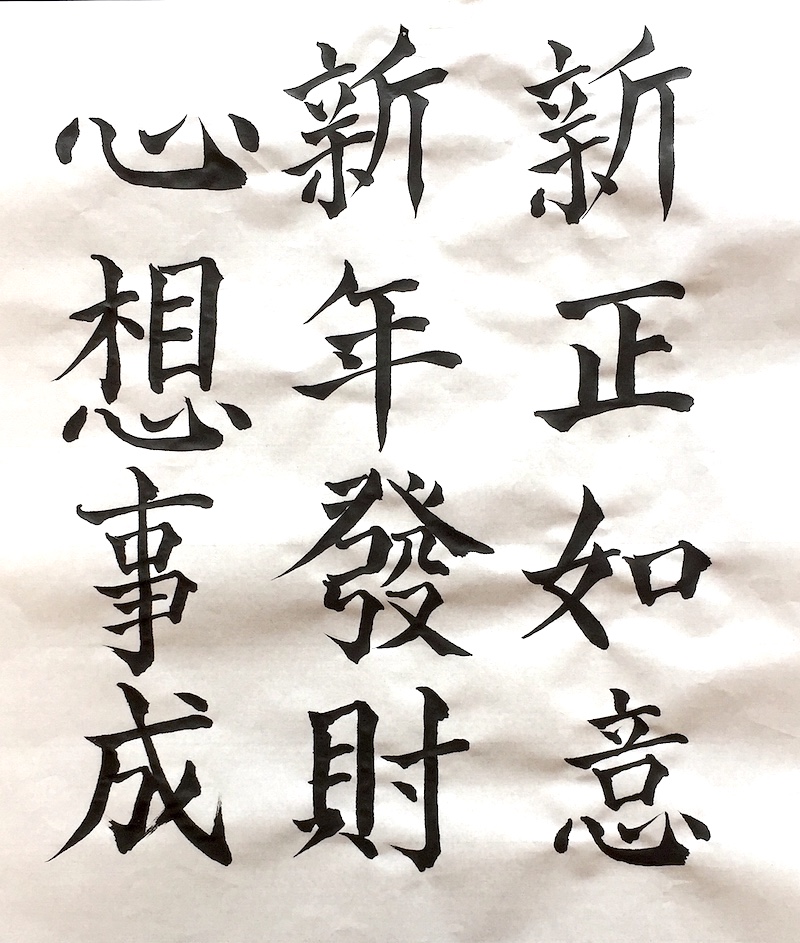 新正如意
新年發財
心想事成